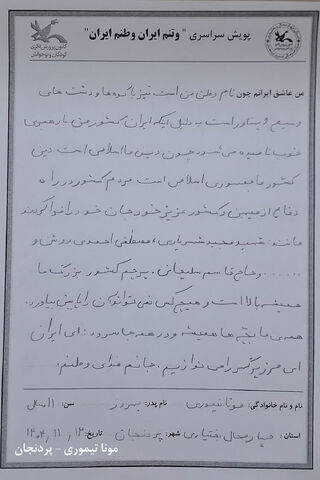 پویش سراسری "وتنم ایران وطنم ایران"
کانون پرورش فکری
کودکان و نوجوانان
من عاشق ایرانم چون نام وطن من است نیز با کوه ها و دشت های
وسیع و پهناور است به دلیل اینکه ایران کشور من با رهبری
خوب نامیده می شود چون دین ما اسلامی است دین
کشور ما جمهوری اسلامی است مردم کشور در راه
دفاع از میهن و کشور عزیز خود جان خود را فدا کردند
مانند: شهید مجید شهریاری، مصطفی احمدی روشن و
...... و حاج قاسم سلیمانی. پرچم کشور بزرگ ما
همیشه بالا است و هیچ کس نمی تواند آن را پایین بیاورد.
همه ی ما بچه ها همیشه و در همه جا سرود: ای ایران
ای مرز پرگهر را می نوازیم. جانم فدای وطنم.
نام و نام خانوادگی: مونا تیموری نام پدر: سن: ۱۱ سال
استان: چهارمحال بختیاری شهر: پردنجان تاریخ: ۱۴۰۴,۱۱,۱۳
مونا تیموری - پردنجان